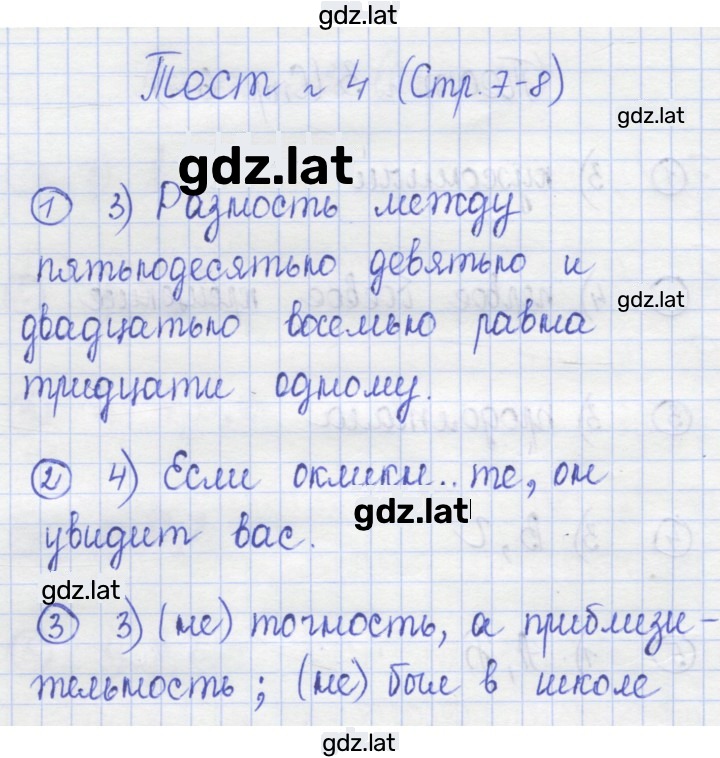 gdz.lat
Тест № 4 (Стр. 7-8)
gdz.lat
gdz.lat
1 3) Разность между
пятьюдесятью девятью и
gdz.lat
двадцатью восемью равна
тридцати одному.
2 4) Если окликн..те, он
gdz.lat
увидит вас.
gdz.lat
3 3) (не) точность, а приблизи-
тельность; (не) был в школе
gdz.lat